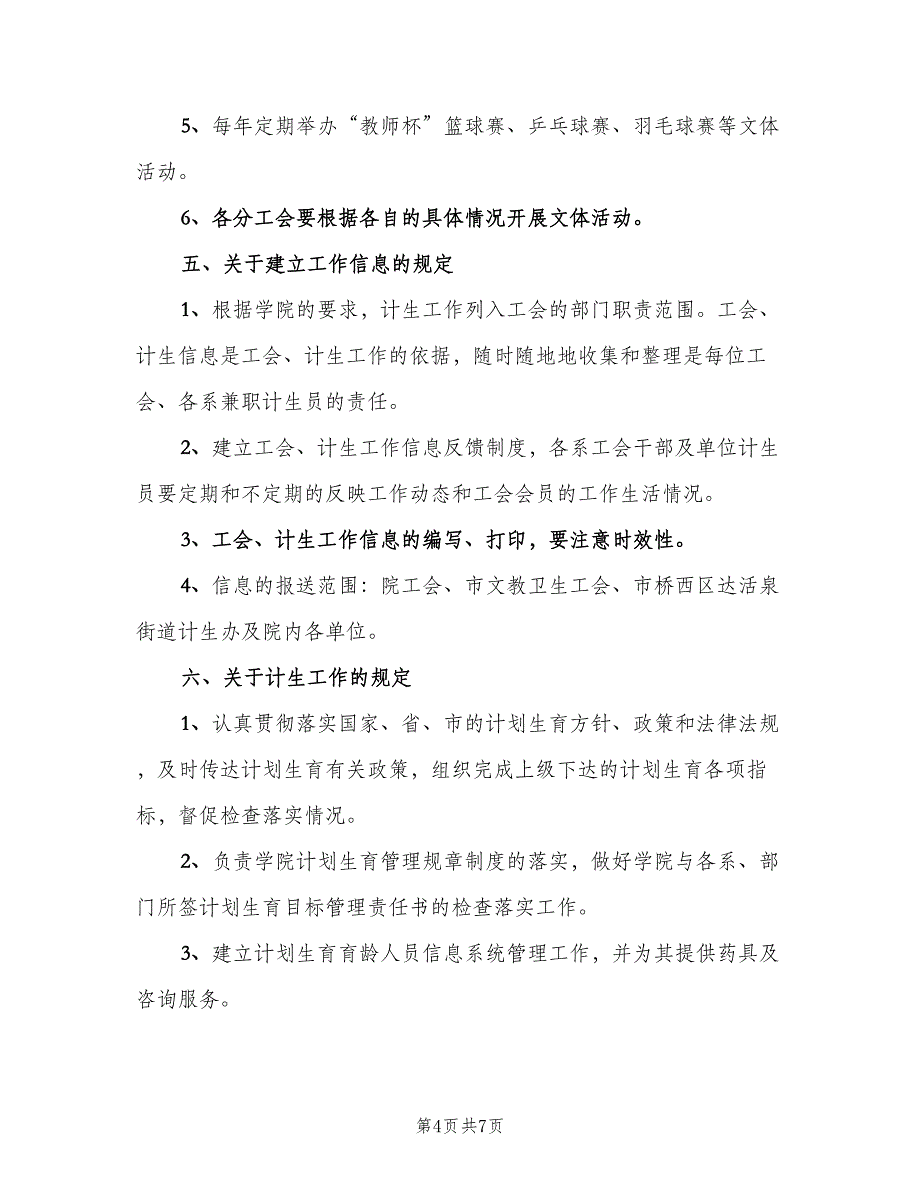 5、每年定期举办“教师杯”篮球赛、乒乓球赛、羽毛球赛等文体
活动。
6、各分工会要根据各自的具体情况开展文体活动。
五、关于建立工作信息的规定
1、根据学院的要求，计生工作列入工会的部门职责范围。工会、
计生信息是工会、计生工作的依据，随时随地地收集和整理是每位工
会、各系兼职计生员的责任。
2、建立工会、计生工作信息反馈制度，各系工会干部及单位计生
员要定期和不定期的反映工作动态和工会会员的工作生活情况。
3、工会、计生工作信息的编写、打印，要注意时效性。
4、信息的报送范围：院工会、市文教卫生工会、市桥西区达活泉
街道计生办及院内各单位。
六、关于计生工作的规定
1、认真贯彻落实国家、省、市的计划生育方针、政策和法律法规
，及时传达计划生育有关政策，组织完成上级下达的计划生育各项指
标，督促检查落实情况。
2、负责学院计划生育管理规章制度的落实，做好学院与各系、部
门所签计划生育目标管理责任书的检查落实工作。
3、建立计划生育育龄人员信息系统管理工作，并为其提供药具及
咨询服务。
第4页共7页